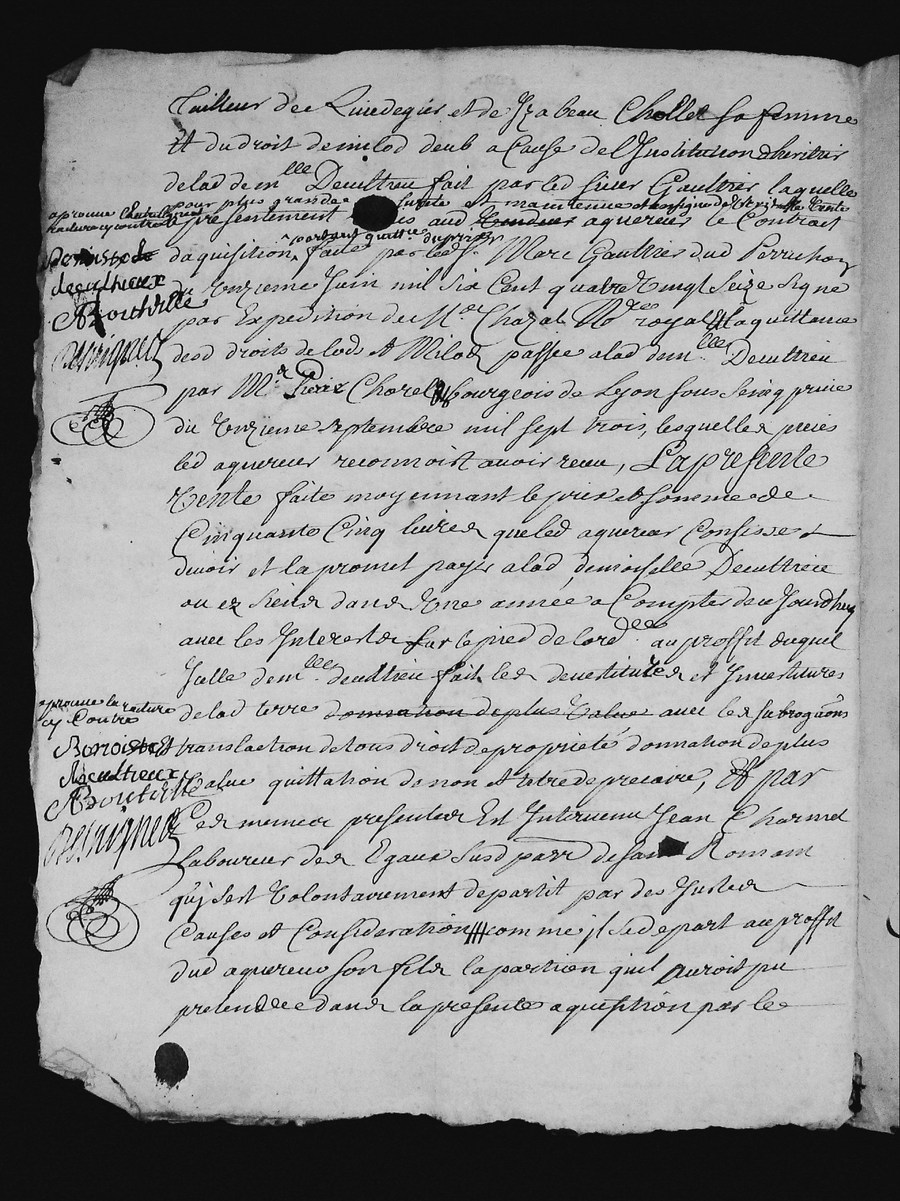 Tailleur de Rivedegier et de Izabeau Chollet sa femme
et du droit de milod deub a Cause de l'Institution dheritier
de lad demlle Decultieu fait par led sieur Gaultier laquelle
pour plus grande sureté et maintenue de la presente Vente
presentement aud Vendeur aquereur le Contrait
daquisition faite par led Sr Marc Gaultier dud Perrichon
portant quittce du prix
du Onzieme Juin mil six Cent quatre Vingt Seize Signe
par Expedition de Me Chazal Nore royal Et la quittance
desd droits de lods et Milod passée a lad demlle Decultieu
par Mr Pierre Chorel bourgeois de Lyon sous seing prive
du Onzieme septembre mil sept trois, lesquelles pieces
led aquereur reconnoist avoir receu, La presente
Vente faite moyennant le prix et somme de
Cinquante Cinq livres que led aquereur Confesse
devoir et la promet payer a lad demoiselle Decultieu
ou es siens dans Une année a Compter de ce Jourdhuy
avec les Interests sur le pied de lordce au proffit duquel
Icelle demlle decultieu fait les devestitures et Investitures
de lad terre donnation de plus Value avec les subrogaons
et translaction de tous droit de proprieté donnation de plus
Value quittation de non et titre de precaire, Et par
Ces memes presentes Est Intervenu Jean Charmet
Laboureur des Egaux susd parr de saint Romant
quj sest Volontairement departit par des Justes
Causes et Consideration comme jl se depart au proffit
dud aquereur son fils la portion quil auroit pu
pretendre dans la presente aquesition par le
aprouve
rature cy contre
Benoiste
decultieux
ABoutville
aprouve la rature
cy Contre
Benoiste
decultieux
ABoutville